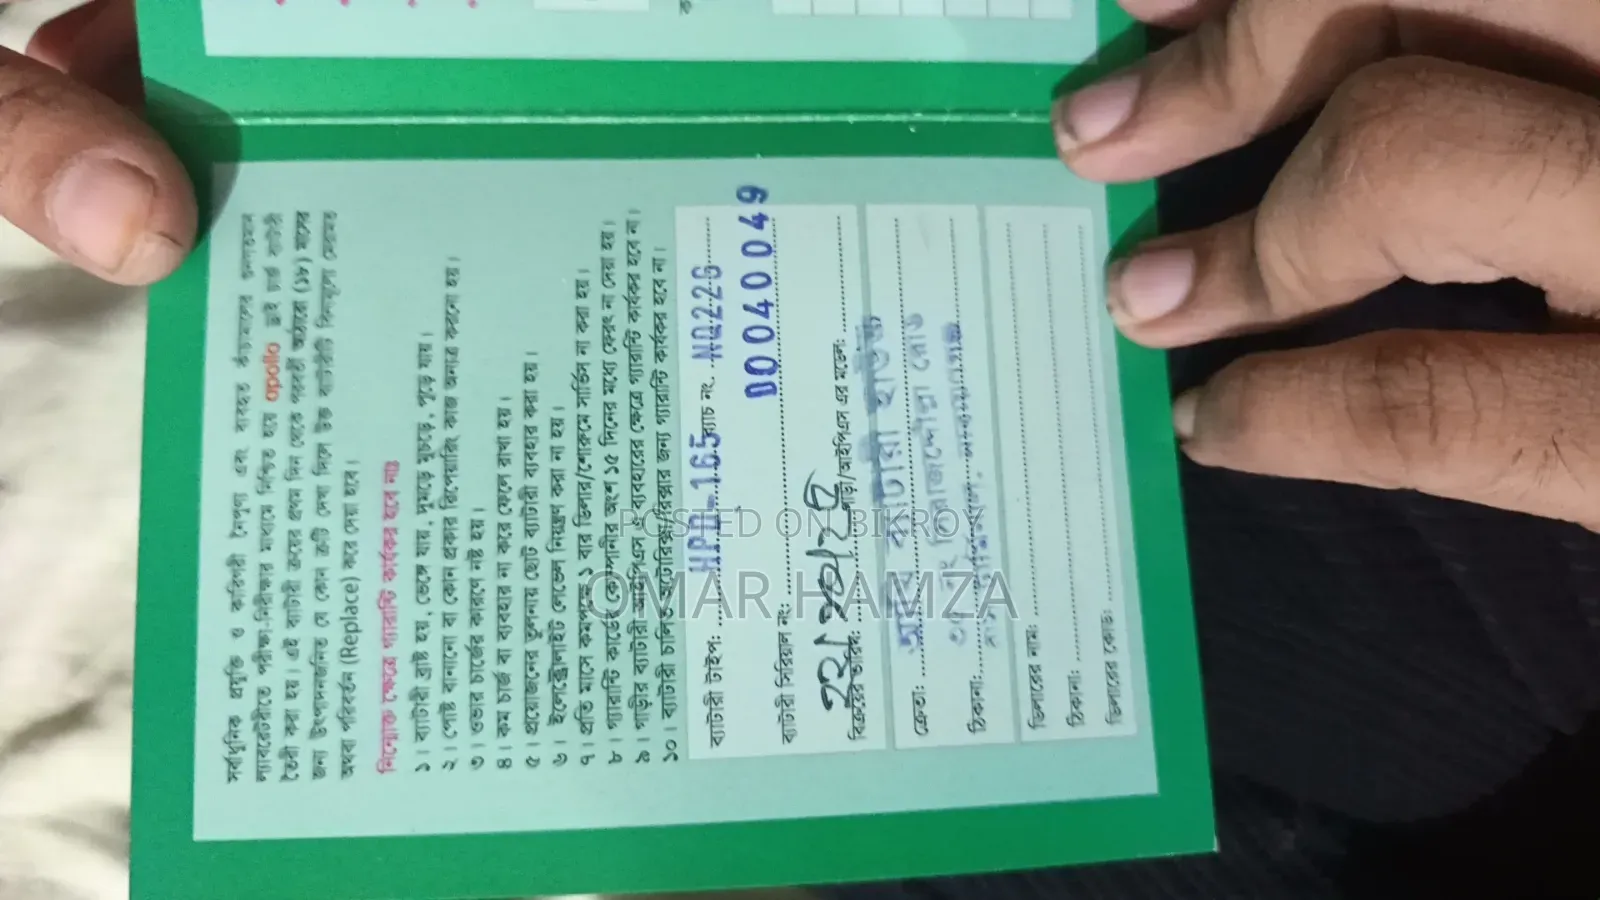 সর্বাধুনিক প্রযুক্তি ও কারিগরী নৈপুণ্য এবং ব্যবহৃত কাঁচামালের গুনাগুনের
ল্যাবরেটরীতে পরীক্ষা-নিরীক্ষার মাধ্যমে নিশ্চিত হয়ে apollo ড্রাই চার্জ ব্যাটারী
তৈরী করা হয়। এই ব্যাটারী ক্রয়ের প্রথম দিন থেকে পরবর্তী আঠারো (১৮) মাসের
জন্য উৎপাদনজনিত যে কোন ত্রুটি দেখা দিলে উক্ত ব্যাটারীটি বিনামূল্যে মেরামত
অথবা পরিবর্তন (Replace) করে দেয়া হবে।
নিম্নোক্ত ক্ষেত্রে গ্যারান্টি কার্যকর হবে নাঃ
১। ব্যাটারীর ব্রাষ্ট হয়, ভেঙ্গে যায়, দুমড়ে মুচড়ে, পুড়ে যায়।
২। পোষ্ট বানানো বা কোন প্রকার রিপেয়ারিং কাজ অন্যত্র করানো হয়।
৩। ওভার চার্জের কারনে নষ্ট হয়।
৪। কম চার্জ বা ব্যবহার না করে ফেলে রাখা হয়।
৫। প্রয়োজনের তুলনায় ছোট ব্যাটারী ব্যবহার করা হয়।
৬। ইলেক্ট্রোলাইট লেভেল নিয়ন্ত্রন করা না হয়।
৭। প্রতি মাসে কমপক্ষে ১ বার ডিলার/শোরুমে সার্ভিস না করা হয়।
৮। গ্যারান্টি কার্ডের কোম্পানীর অংশ ১৫ দিনের মধ্যে ফেরৎ না দেয়া হয়।
৯। গাড়ীর ব্যাটারী আইপিএস এ ব্যবহারের ক্ষেত্রে গ্যারান্টি কার্যকর হবে না।
১০। ব্যাটারী চালিত অটোরিক্সা/রিক্সার জন্য গ্যারান্টি কার্যকর হবে না।
ব্যাটারী টাইপ: HPD-165 ব্যাচ নং. NQ226
ব্যাটারী সিরিয়াল নং: D0040049
বিক্রয়ের তারিখ: গাড়ী/আইপিএস এর মডেল:
ক্রেতা: ব্যাটারী হাউজ
ঠিকানা: সিরাজদ্দৌল্লা রোড
নারায়ণগঞ্জ.
ডিলারের নাম:
ঠিকানা:
ডিলারের কোড:
POSTED ON BIKROY
OMAR HAMZA